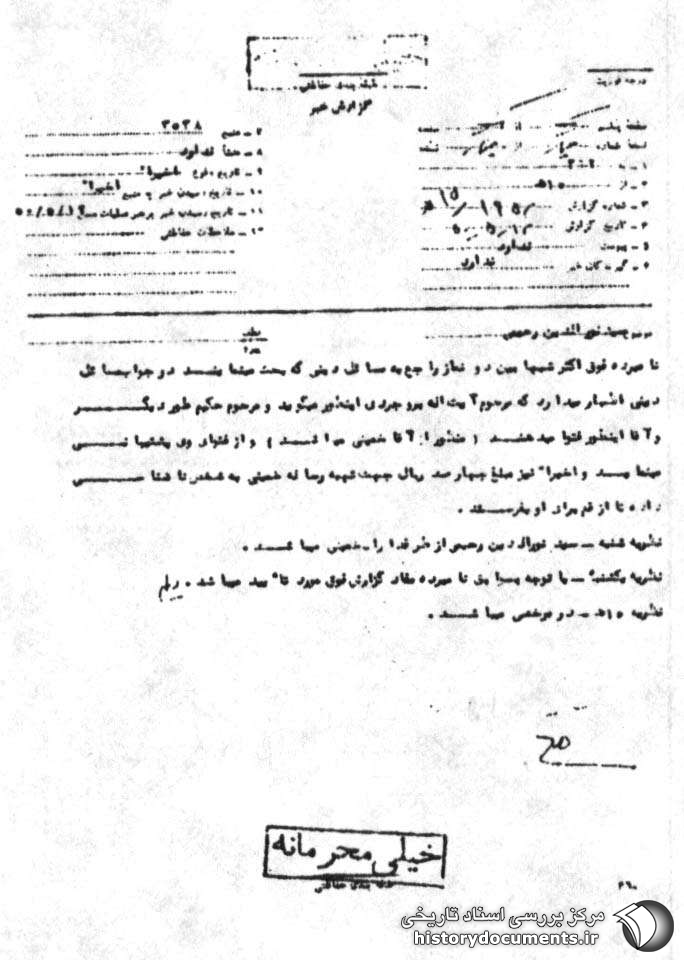 طبقه بندی حفاظتی
گزارش خبر
درجه فوریت
۷ - منبع ۳۵۳۸
۸ - منشأ ندارد
۹ - تاریخ وقوع اخیرا"
۱۰ - تاریخ رسیدن خبر به منبع اخیرا"
۱۱ - تاریخ رسیدن خبر به رهبر عملیات
۱۲ - ملاحظات حفاظتی
۱ - به ۳۰۲
۲ - از ۱۵ه
۳ - شماره گزارش
۴ - تاریخ گزارش
۵ - پیوست ندارد
۶ - گیرندگان خبر ندارد
موضوع سید نورالدین رحیمی
نامبرده فوق اکثر شبها بین دو نماز راجع به مسائل دینی که بحث مینماید در جواب مسائل
دینی اظهار میدارد که مرحوم آیت اله بروجردی اینطور میگوید و مرحوم حکیم طور دیگر
و آقا اینطور فتوا میدهند ( منظور از آقا خمینی میباشد ) و از فتوای وی پشتیبانی
مینماید و اخیرا" نیز مبلغ چهارصد ریال جهت تهیه رساله خمینی به شخص ناشناسی
داده تا از قم برای او بفرستد .
نظریه شنبه - سید نورالدین رحیمی از طرفداران خمینی میباشد .
نظریه یکشنبه - با توجه بسوابق نامبرده مفاد گزارش فوق مورد تائید میباشد .
نظریه ۱۵ه - در مرخصی میباشد .
خیلی محرمانه
طبقه بندی حفاظتی
۲۶۰
مرکز بررسی اسناد تاریخی
historydocuments.ir